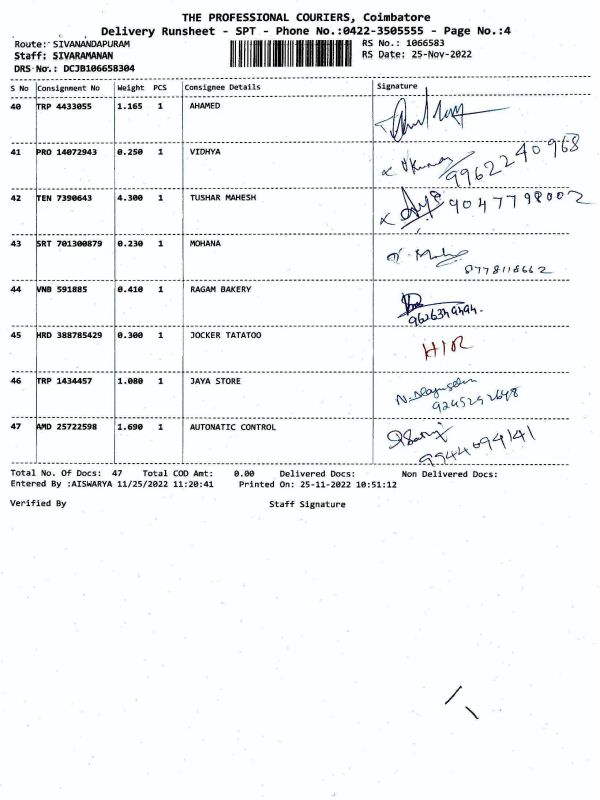 THE PROFESSIONAL COURIERS, Coimbatore
Delivery Runsheet - SPT - Phone No.:0422-3505555 - Page No.:4
Route: SIVANANDAPURAM RS No.: 1066583
Staff: SIVARAMANAN RS Date: 25-Nov-2022
DRS No.: DCJB106658304
S No Consignment No Weight PCS Consignee Details Signature
40 TRP 4433055 1.165 1 AHAMED
41 PRO 14072943 0.250 1 VIDHYA 9962240968
42 TEN 7390643 4.300 1 TUSHAR MAHESH 9047798002
43 SRT 701300879 0.230 1 MOHANA
8778118662
44 VNB 591885 0.410 1 RAGAM BAKERY
45 HRD 388785429 0.300 1 JOCKER TATATOO
46 TRP 1434457 1.080 1 JAYA STORE
9245292648
47 AMD 25722598 1.690 1 AUTONATIC CONTROL
9944094141
Total No. Of Docs: 47 Total COD Amt: 0.00 Delivered Docs: Non Delivered Docs:
Entered By :AISWARYA 11/25/2022 11:20:41 Printed On: 25-11-2022 10:51:12
Verified By Staff Signature